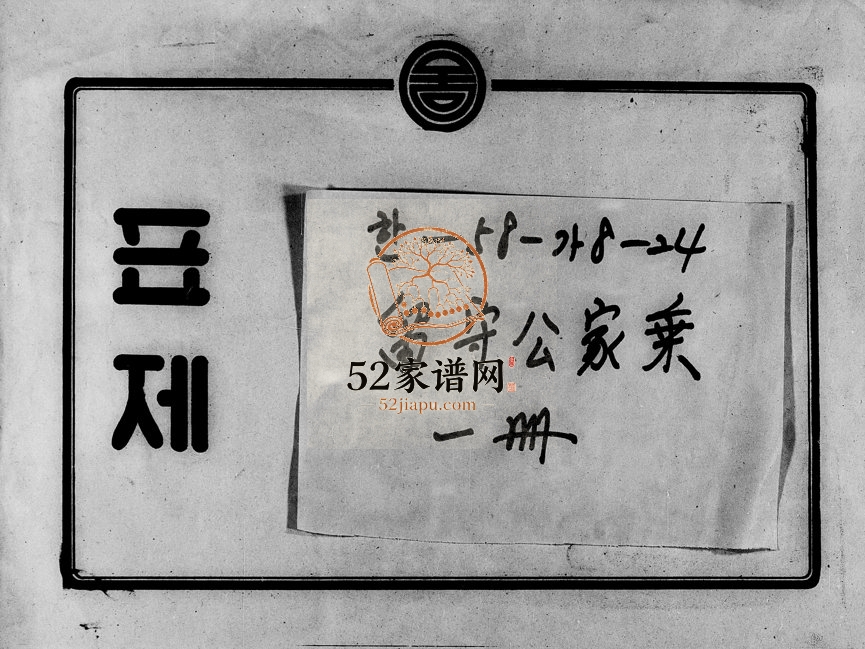 표제
한-58-가8-24
留守公家乘
一冊
52家谱网
52jiapu.com